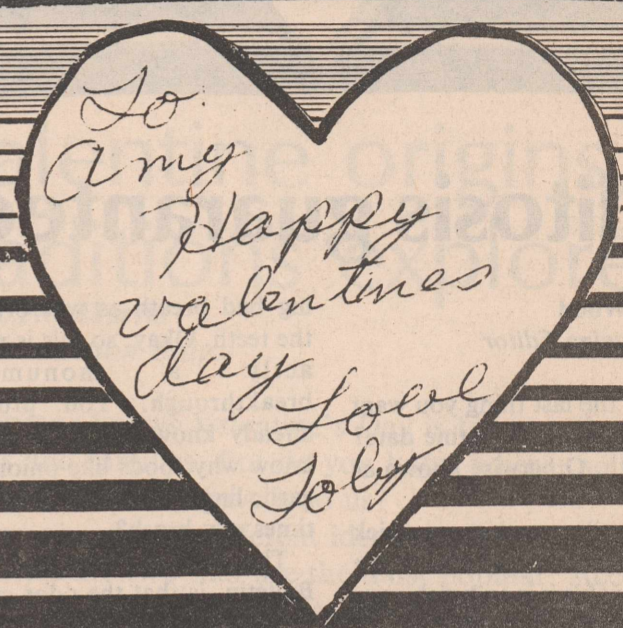 To
Amy
Happy
valentines
day
Love
Toby